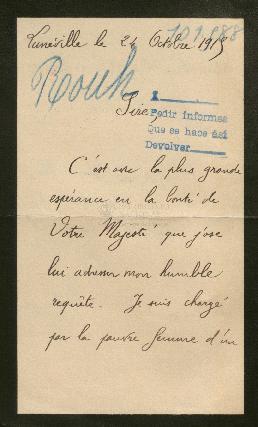 Lunéville le 24 Octobre 1915
101988
Rouh
Sire,
1
Pedir informes
Que se hace así
Devolver
C'est avec la plus grande
espérance en la bonté de
Votre Majesté que j'ose
lui adresser mon humble
requête. Je suis chargé
par la pauvre femme d'un